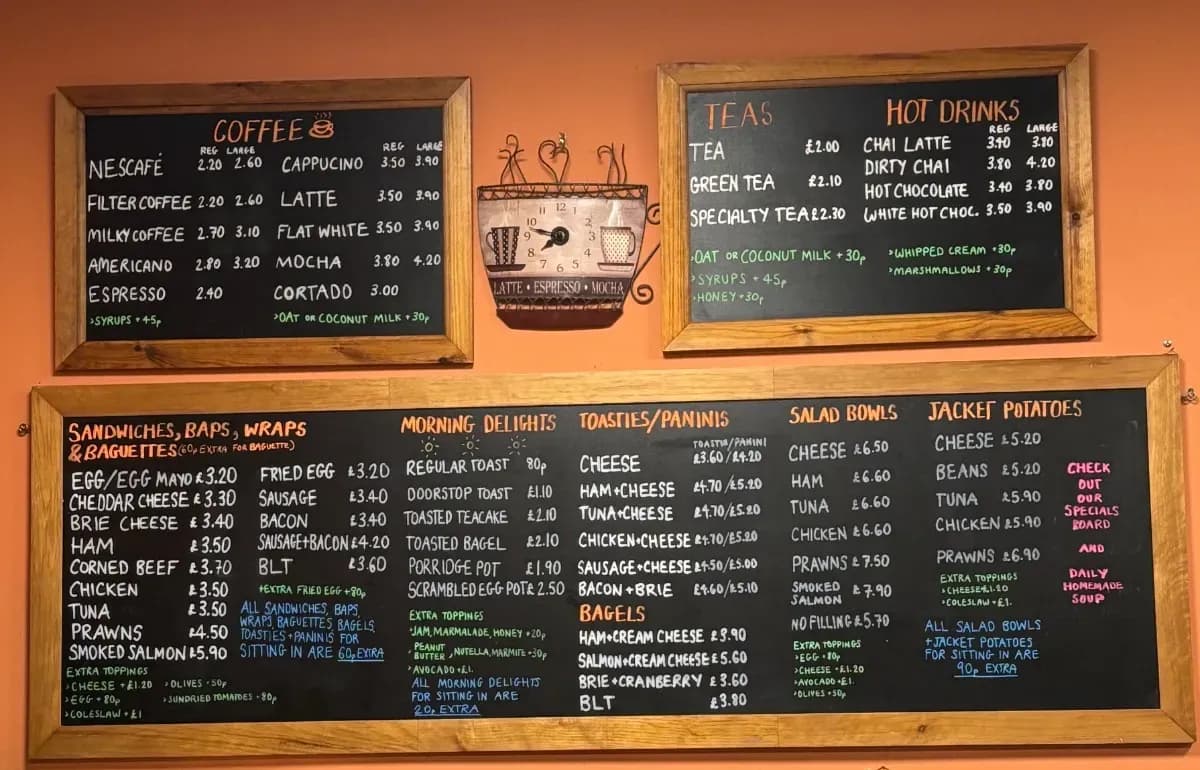 COFFEE
REG LARGE
NESCAFÉ 2.20 2.60
FILTER COFFEE 2.20 2.60
MILKY COFFEE 2.70 3.10
AMERICANO 2.80 3.20
ESPRESSO 2.40
>SYRUPS +45p
REG LARGE
CAPPUCINO 3.50 3.90
LATTE 3.50 3.90
FLAT WHITE 3.50 3.90
MOCHA 3.80 4.20
CORTADO 3.00
>OAT OR COCONUT MILK +30p
11 12 1
10 2
9 3
8 4
7 6 5
LATTE • ESPRESSO • MOCHA
TEAS
TEA £2.00
GREEN TEA £2.10
SPECIALTY TEA £2.30
>OAT OR COCONUT MILK +30p
>SYRUPS +45p
>HONEY +30p
HOT DRINKS
REG LARGE
CHAI LATTE 3.40
DIRTY CHAI 3.80 4.20
HOT CHOCOLATE 3.40 3.80
WHITE HOT CHOC. 3.50 3.90
>WHIPPED CREAM +30p
>MARSHMALLOWS +30p
SANDWICHES, BAPS, WRAPS
& BAGUETTES (60p EXTRA FOR BAGUETTE)
EGG/EGG MAYO £3.20
CHEDDAR CHEESE £3.30
BRIE CHEESE £3.40
HAM £3.50
CORNED BEEF £3.70
CHICKEN £3.50
TUNA £3.50
PRAWNS £4.50
SMOKED SALMON £5.90
EXTRA TOPPINGS
>CHEESE +£1.20 >OLIVES +50p
>EGG +80p >SUNDRIED TOMATOES +80p
>COLESLAW +£1
FRIED EGG £3.20
SAUSAGE £3.40
BACON £3.40
SAUSAGE+BACON £4.20
BLT £3.60
+EXTRA FRIED EGG +80p
ALL SANDWICHES, BAPS,
WRAPS, BAGUETTES, BAGELS,
TOASTIES+PANINIS FOR
SITTING IN ARE 60p EXTRA
MORNING DELIGHTS
REGULAR TOAST 80p
DOORSTOP TOAST £1.10
TOASTED TEACAKE £2.10
TOASTED BAGEL £2.10
PORRIDGE POT £1.90
SCRAMBLED EGG POT £2.50
EXTRA TOPPINGS
>JAM, MARMALADE, HONEY +20p
>PEANUT BUTTER, NUTELLA, MARMITE +30p
>AVOCADO +£1.
ALL MORNING DELIGHTS
FOR SITTING IN ARE
20p EXTRA
TOASTIES/PANINIS
TOASTIE/PANINI
CHEESE £3.60/£4.20
HAM+CHEESE £4.70/£5.20
TUNA+CHEESE £4.70/£5.20
CHICKEN+CHEESE £4.70/£5.20
SAUSAGE+CHEESE £4.50/£5.00
BACON+BRIE £4.60/£5.10
BAGELS
HAM+CREAM CHEESE £3.90
SALMON+CREAM CHEESE £5.60
BRIE+CRANBERRY £3.60
BLT £3.80
SALAD BOWLS
CHEESE £6.50
HAM £6.60
TUNA £6.60
CHICKEN £6.60
PRAWNS £7.50
SMOKED SALMON £7.90
NO FILLING £5.70
EXTRA TOPPINGS
>EGG +80p
>CHEESE +£1.20
>AVOCADO +£1.
>OLIVES +50p
JACKET POTATOES
CHEESE £5.20
BEANS £5.20
TUNA £5.90
CHICKEN £5.90
PRAWNS £6.90
EXTRA TOPPINGS
>CHEESE £1.20
>COLESLAW +£1.
ALL SALAD BOWLS
+JACKET POTATOES
FOR SITTING IN ARE
90p EXTRA
CHECK
OUT
OUR
SPECIALS
BOARD
AND
DAILY
HOMEMADE
SOUP